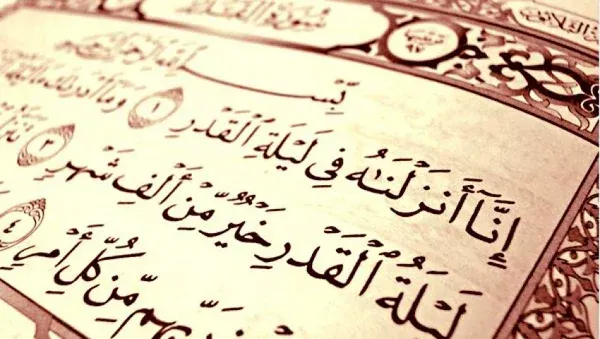 سُورَةُ القَدْرِ
بِسْمِ ٱللَّهِ ٱلرَّحْمَٰنِ ٱلرَّحِيمِ
إِنَّآ أَنزَلْنَٰهُ فِي لَيْلَةِ ٱلْقَدْرِ ١ وَمَآ أَدْرَىٰكَ مَا لَيْلَةُ
لَيْلَةُ ٱلْقَدْرِ خَيْرٌ مِّنْ أَلْفِ شَهْرٍ ٣
رَبِّهِم مِّن كُلِّ أَمْرٍ ٤